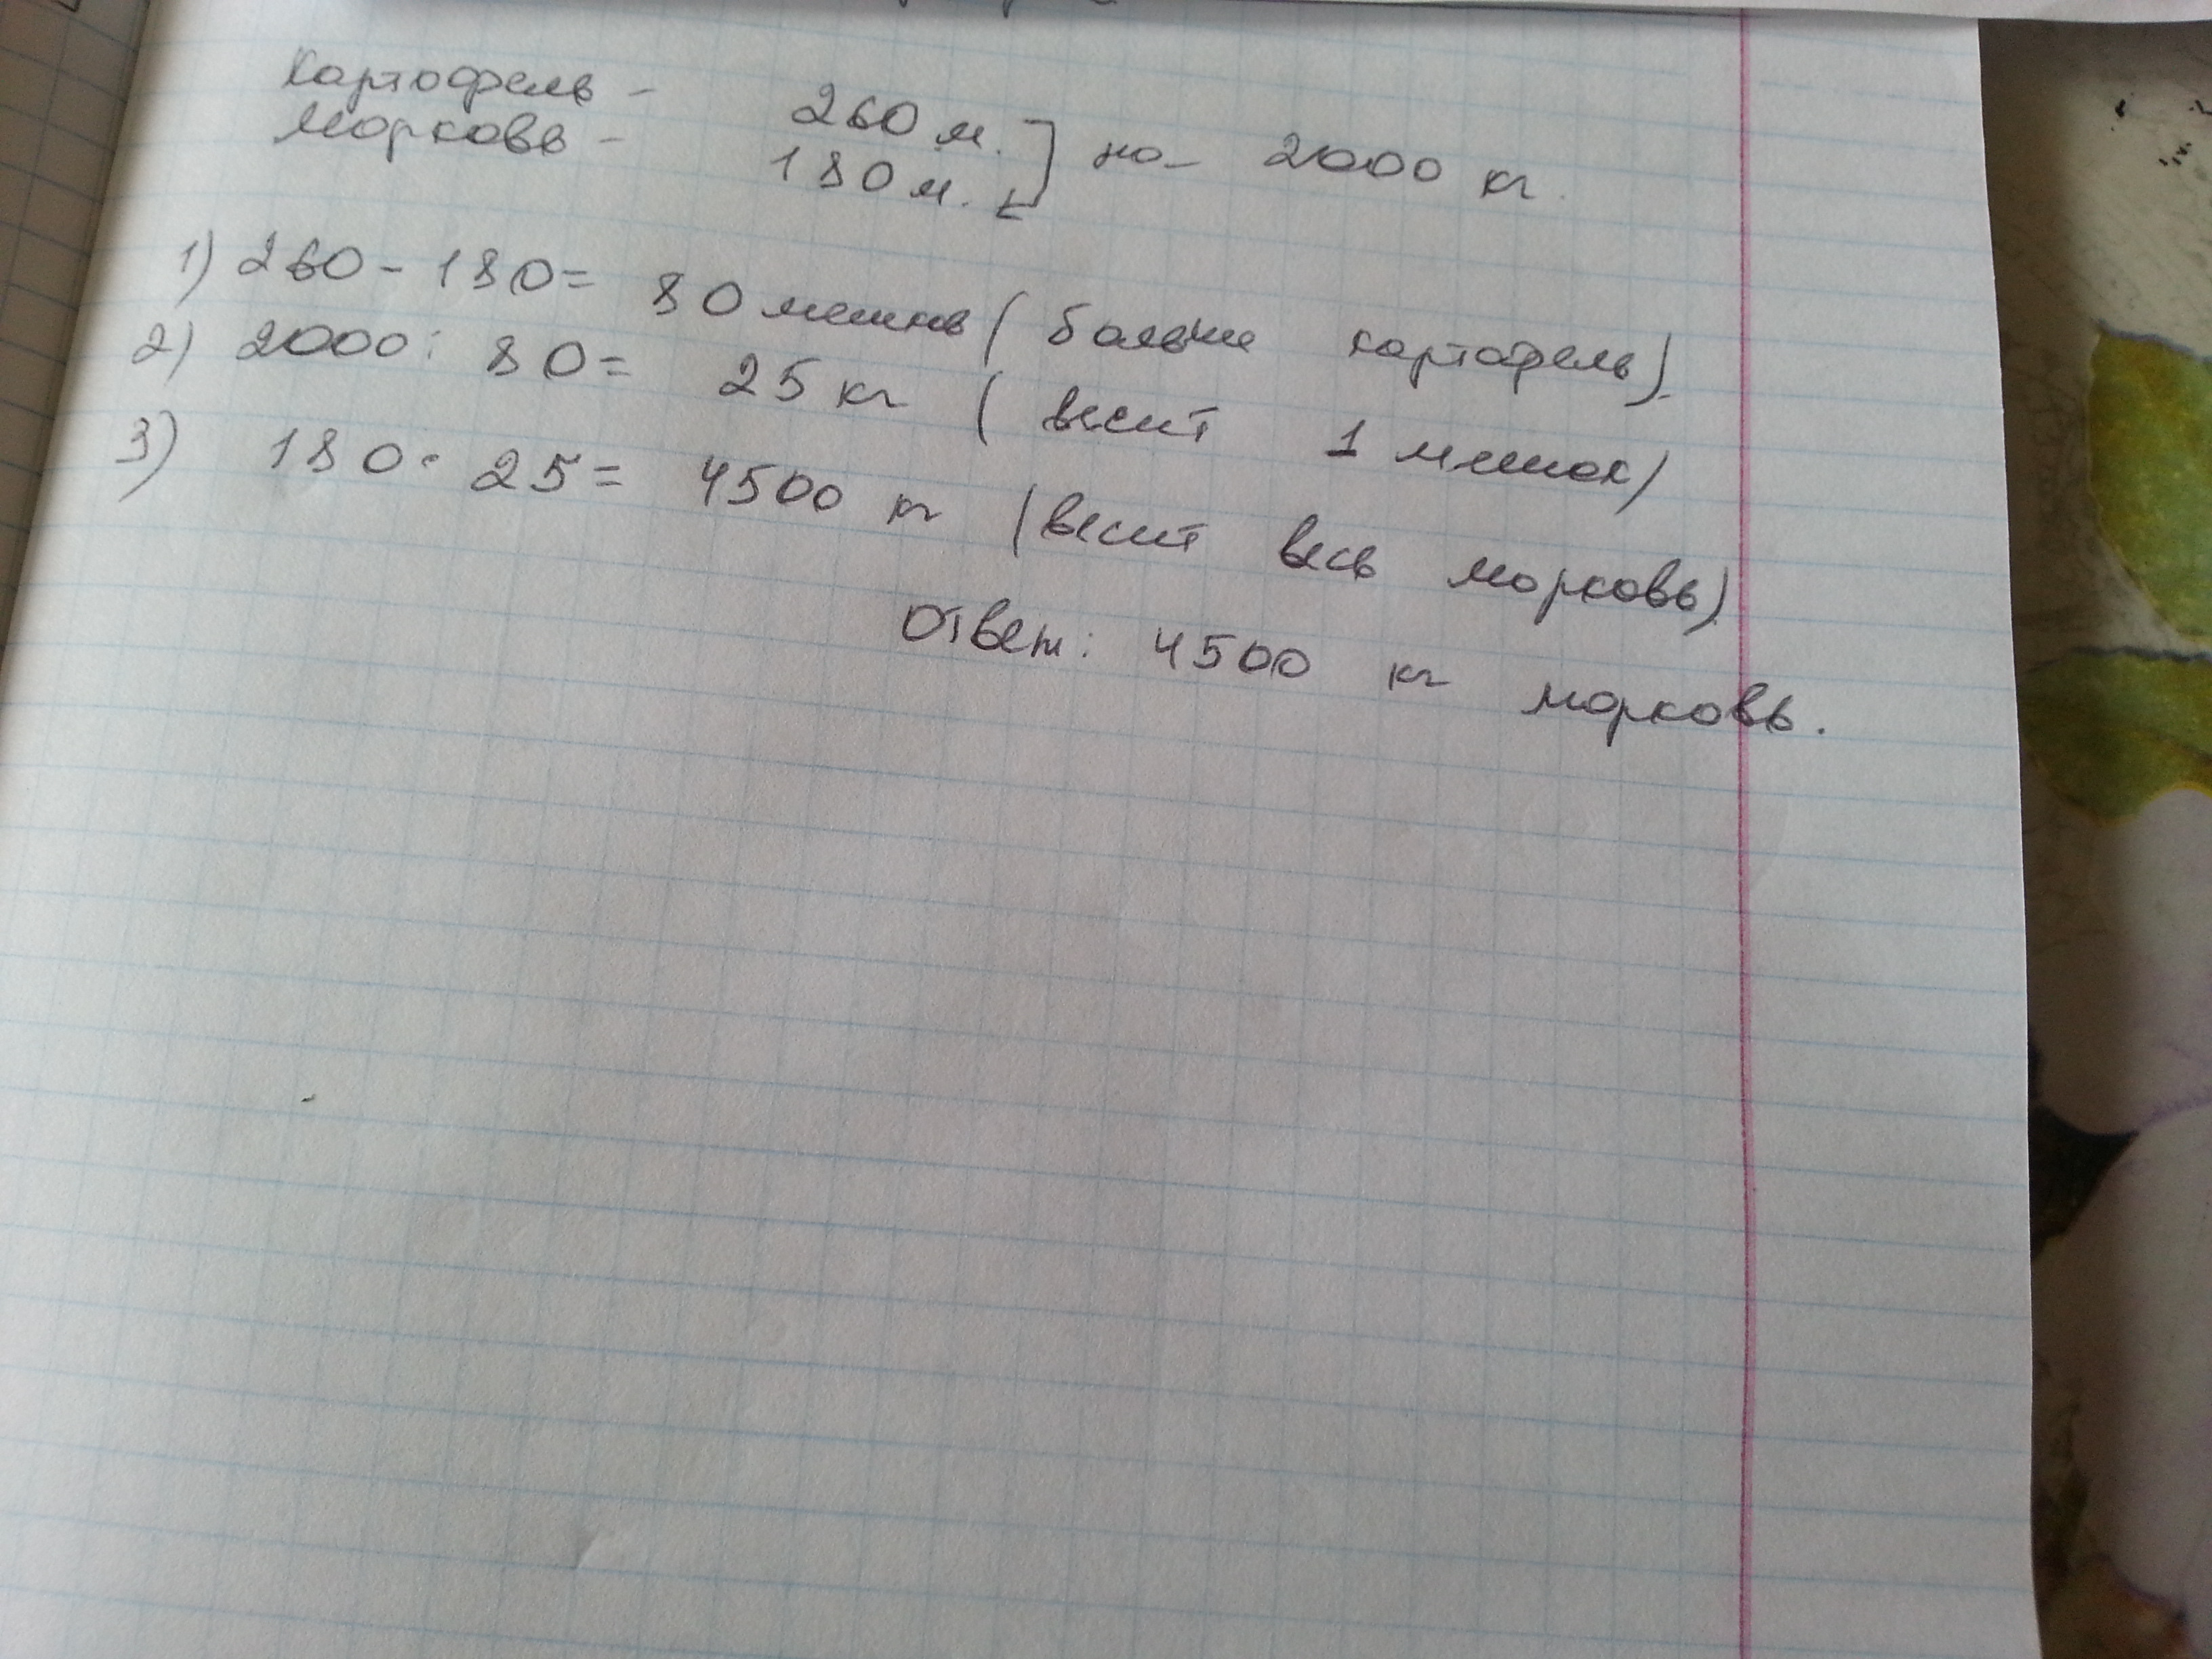 Картофель - 260 м.
Морковь - 180 м.
] на - 2000 кг.
1) 260 - 180 = 80 мешков ( больше картофель).
2) 2000 : 80 = 25 кг ( весит 1 мешок)
3) 180 · 25 = 4500 кг (весит весь морковь).
Ответ: 4500 кг морковь.